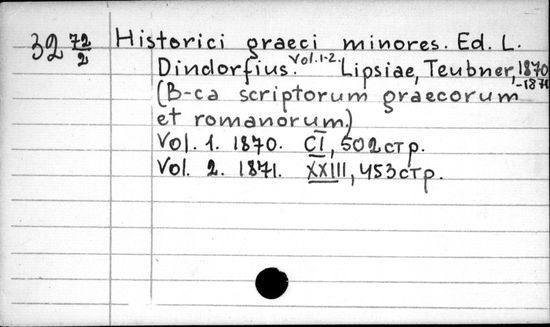 32 72/2 Historici graeci minores. Ed. L.
Dindorfius. Vol. 1-2. Lipsiae, Teubner, 1870-1871
(B-ca scriptorum graecorum
et romanorum.)
Vol. 1. 1870. CI, 502 стр.
Vol. 2. 1871. XXIII, 453 стр.